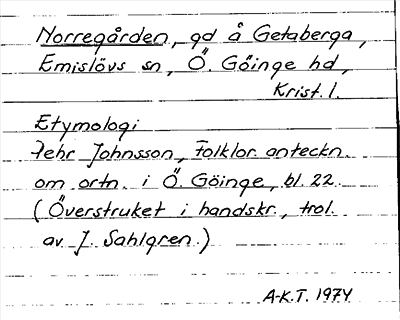 Norregården, gd å Getaberga,
Emislövs sn, Ö. Göinge hd,
Krist. l.
Etymologi
Pehr Johnsson, Folklor. anteckn.
om ortn. i Ö. Göinge, bl. 22.
(Överstruket i handskr., trol.
av J. Sahlgren.)
A-K.T. 1974